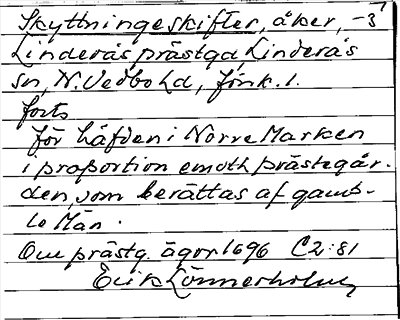 Skyttningeskifter, åker, -3
Linderås prästgd, Linderås
sn, N. Vedbo hd, Jönk. l.
forts
för häfden i Norre Marken
i proportion emoth prästegår-
den, som berättas af gamb-
le Män.
Om prästg. ägor 1696 C2:81
Erik Lönnerholm